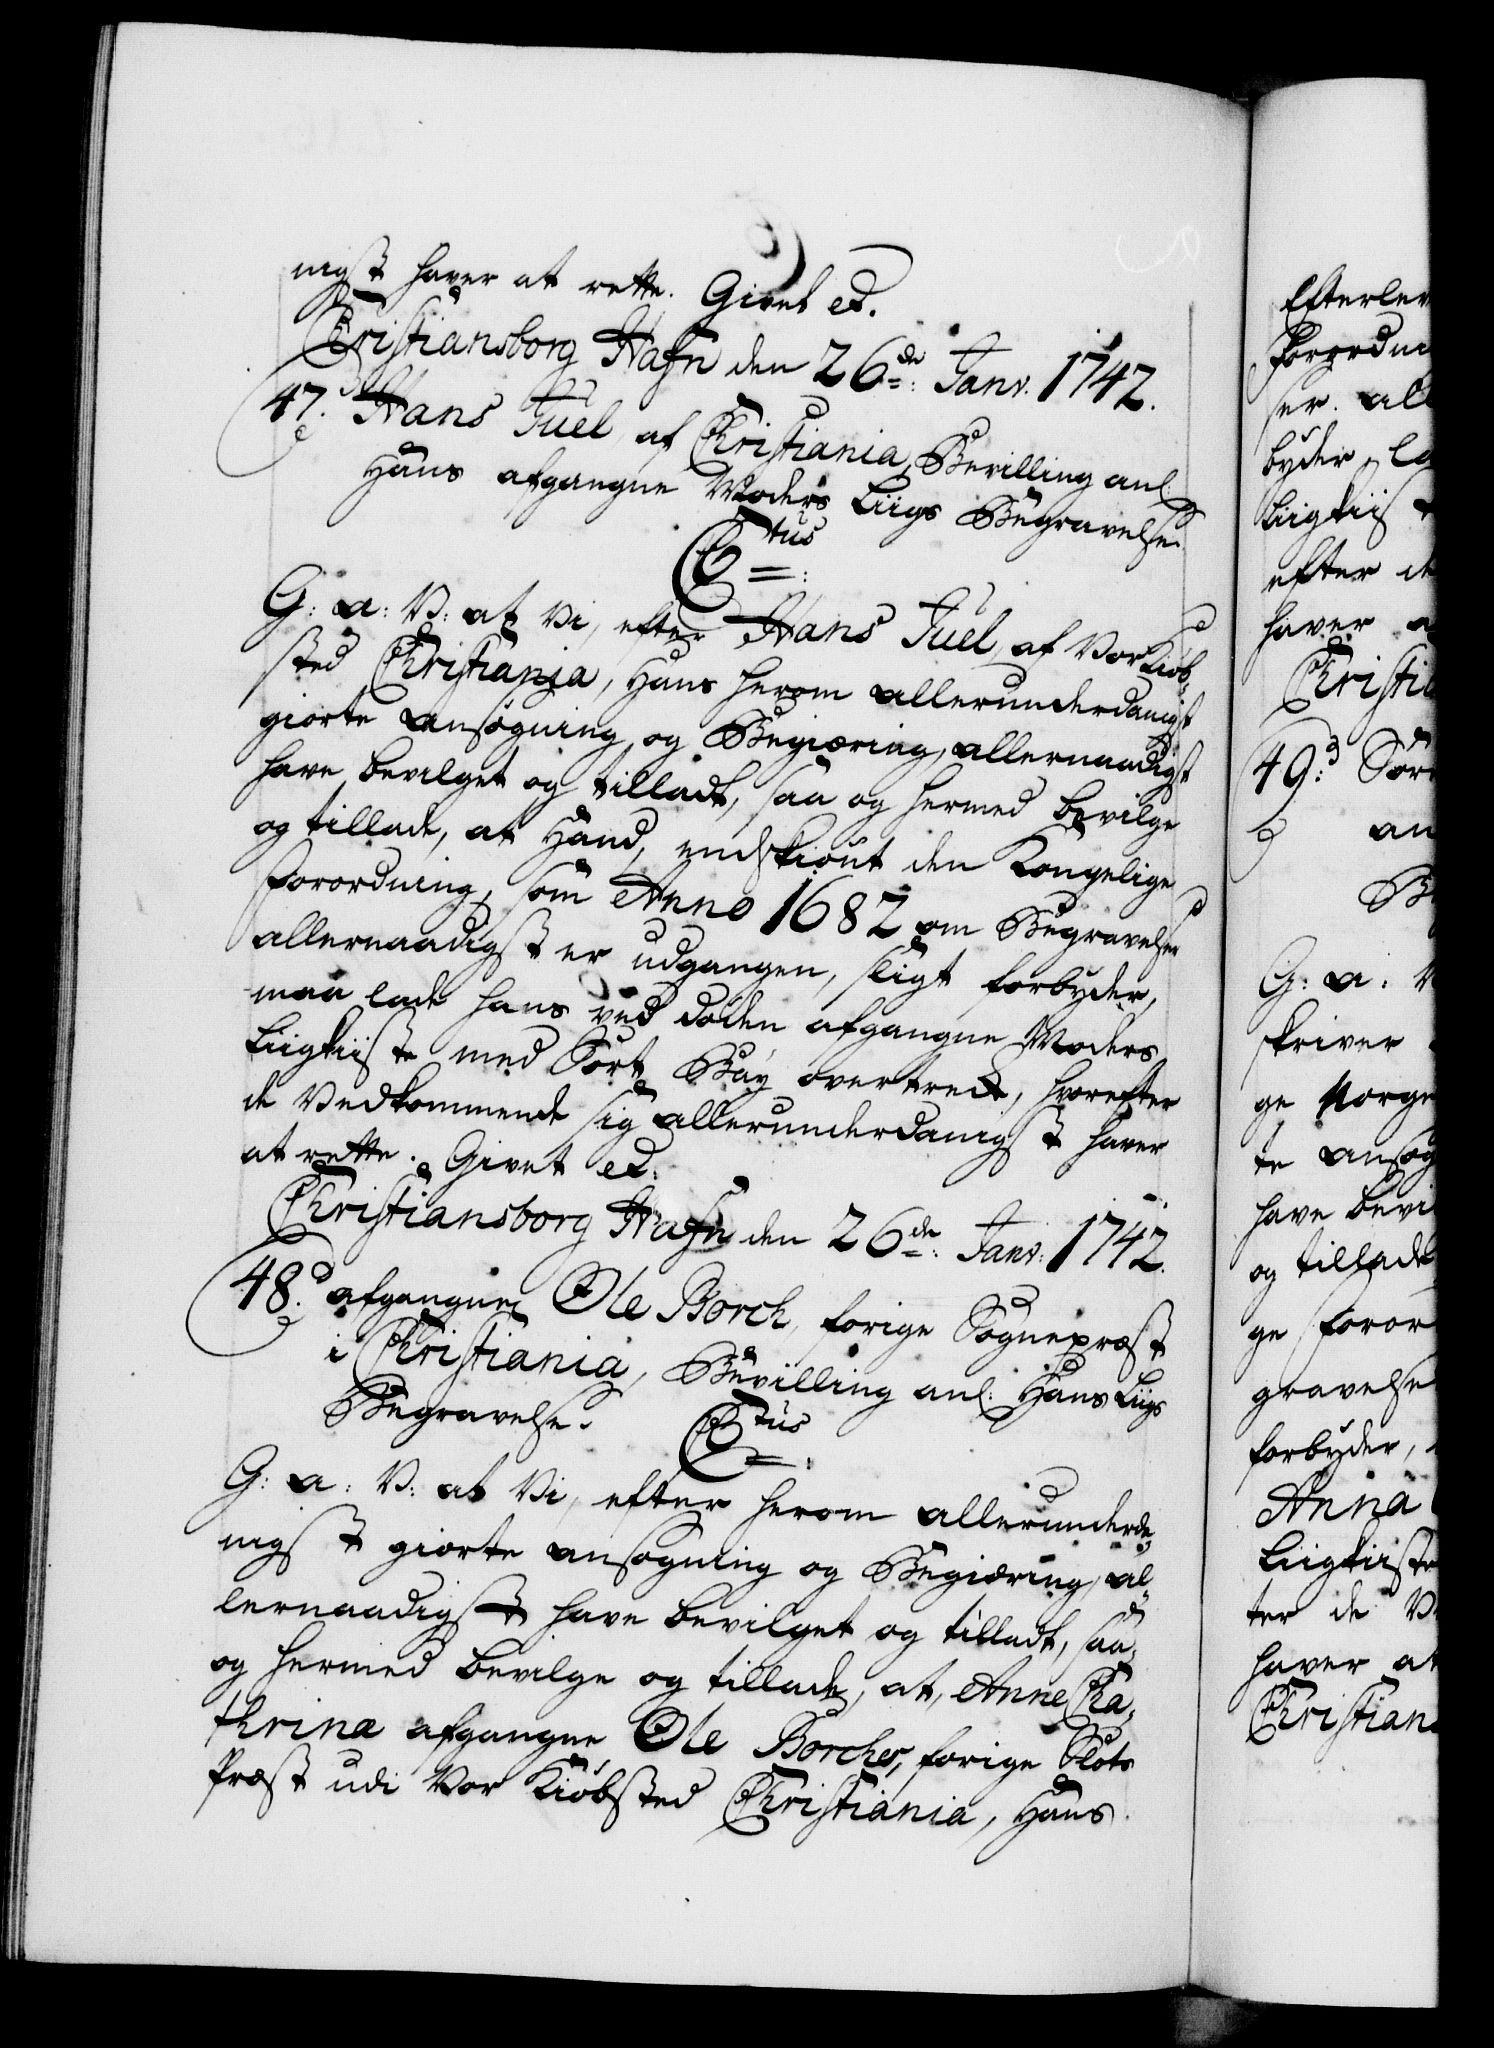 nigst haver at rette. Givet etc.
Christiansborg Hafn den 26de Janv: 1742.
47. Hans Juel, af Christiania, Bevilling anl:
Hans afgangne Moders Liigs Begravelse.
C6tus
G: a: V: at Vi, efter Hans Juel, af Vor Kiøb-
sted Christiania, Hans herom allerunderdanigst
giorte ansøgning og Begiæring, allernaadigst
have bevilget og tilladt, saa og hermed bevilge
og tillade, at Hand, endskiønt den Kongelige
Forordning, som Anno 1682 om Begravelser
allernaadigst er udgangen, sligt forbyder,
maa lade hans ved døden afgangne Moders
Liigkiiste med Sort Bay overtrect, hvorefter
de Vedkommende sig allerunderdanigst haver
at rette. Givet etc.
Christiansborg Hafn den 26de Janv: 1742.
48. afgangne Ole Borch, forige Sognepræst
i Christiania, Bevilling anl: Hans Liigs
Begravelse. C6tus
G: a: V: at Vi, efter herom allerunderda-
nigst giorte ansøgning og Begiæring, al-
lernaadigst have bevilget og tilladt, saa
og hermed bevilge og tillade, at, Anne Cha-
thrina afgangne Ole Borches, forige Slots
Præst udi Vor Kiøbsted Christiania, Hans
Efterlev
Forordni
ser. all
byder, la
Liigkiist
efter de
haver a
Christia
49. Søre
an
Be
G: a: V
skriver
ge Norge
te ansøg
have bevi
og tillade
ge Foror
gravelse
forbyder,
Anna
Liigkiiste
ter de V
haver at
Christian